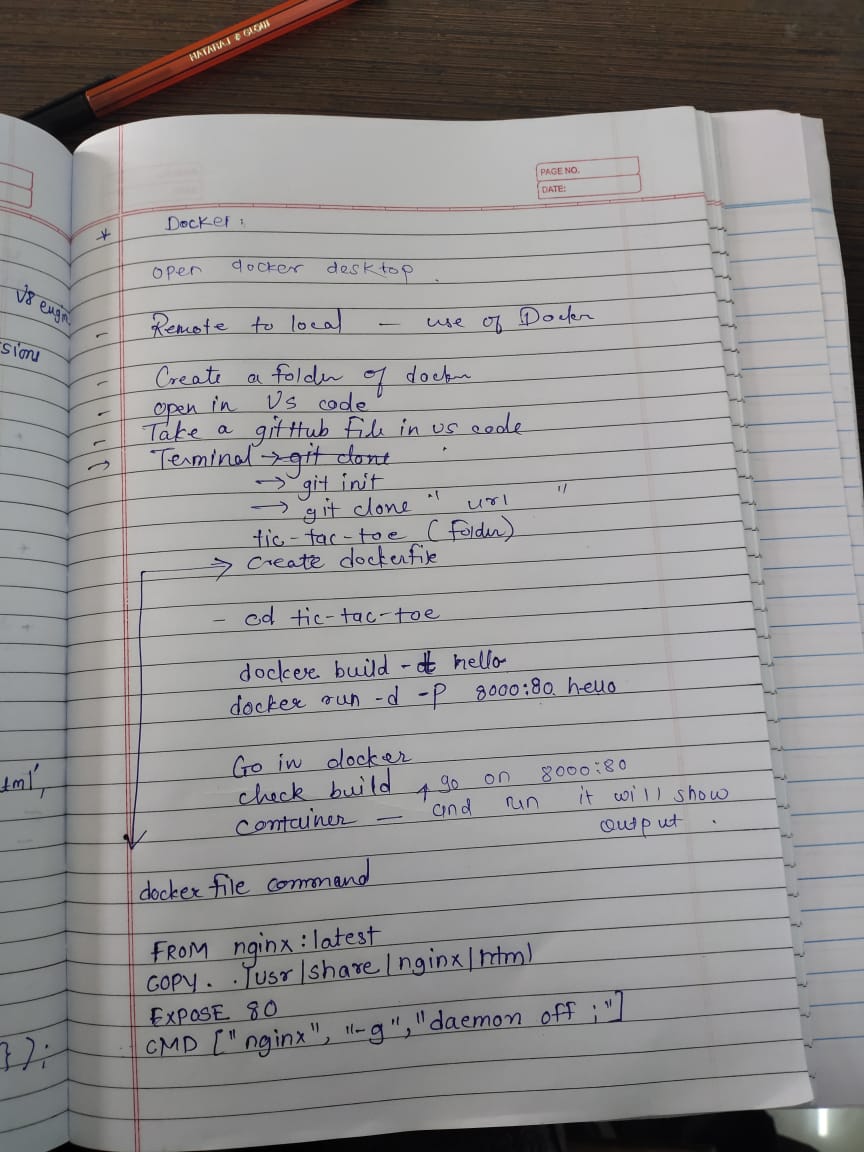 NATARAJ & GLOW
PAGE NO.
DATE:
* Docker:
open docker desktop.
- Remote to local - use of Docker
- Create a folder of docker
- open in Vs code
- Take a gitHub file in vs code
→ Terminal → git clone
→ git init
→ git clone " url "
tic-tac-toe (folder)
→ Create dockerfile
- cd tic-tac-toe
docker build -t hello
docker run -d -p 8000:80 hello
Go in docker
check build ↑ go on 8000:80
container - and run it will show
output.
docker file command
FROM nginx:latest
COPY . /usr/share/nginx/html
EXPOSE 80
CMD ["nginx", "-g", "daemon off ;"]
V8 engin
sions
tml',
});